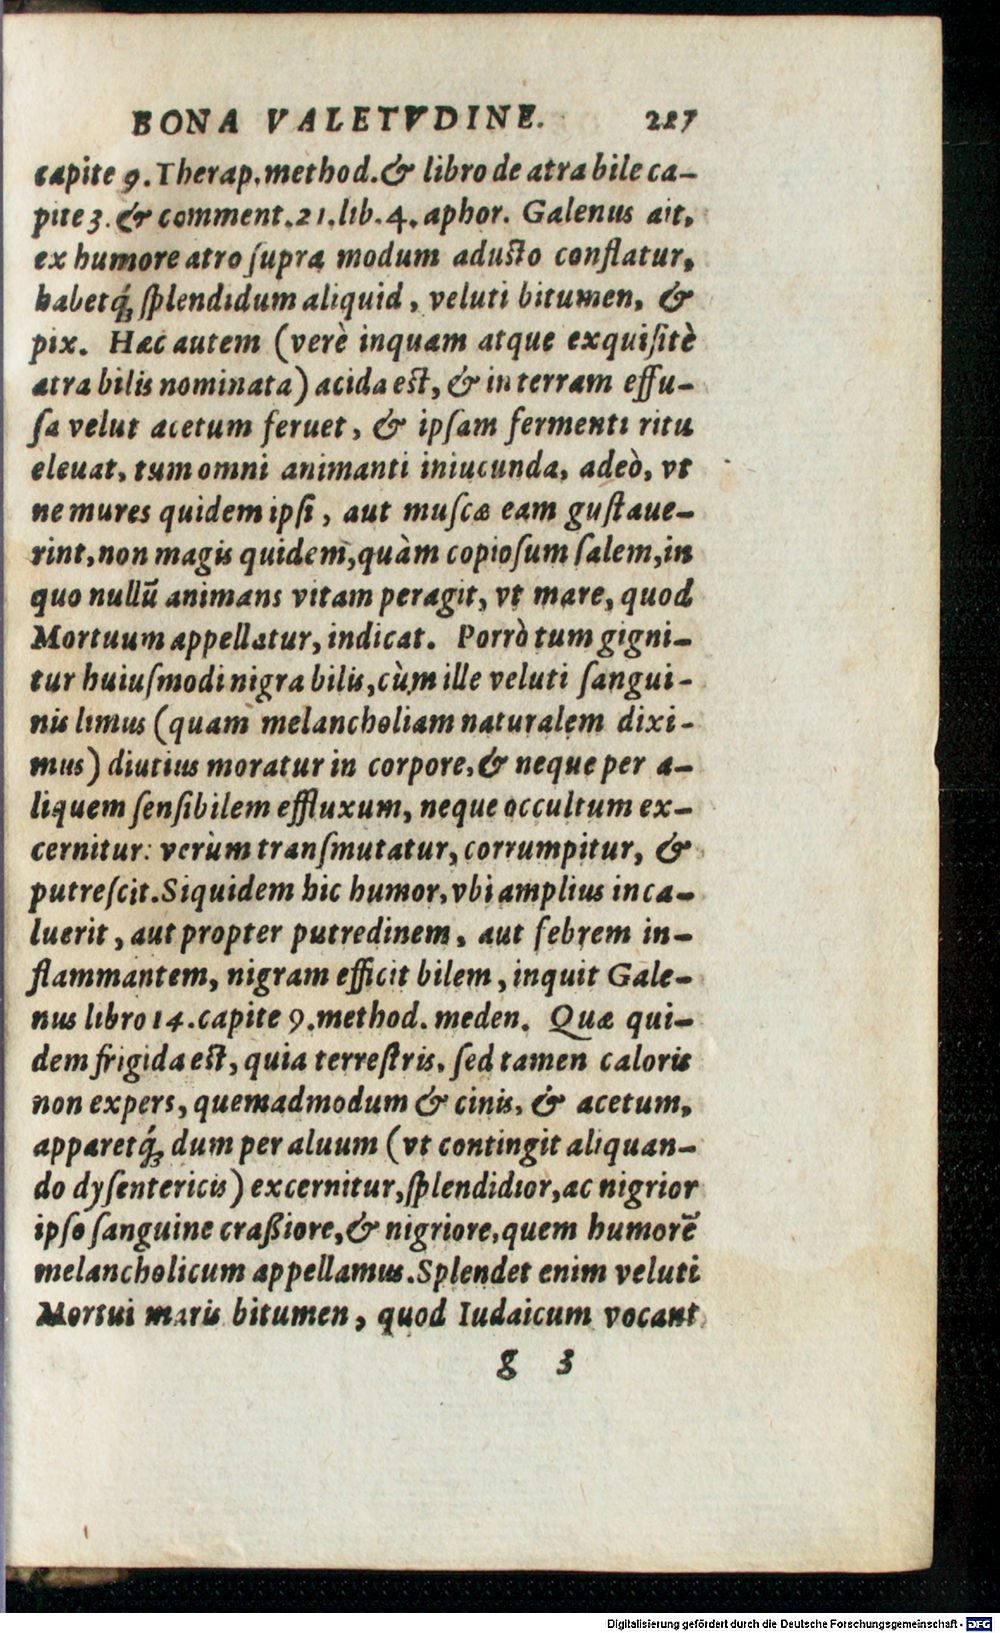 BONA VALETVDINE. 217
capite 9. Therap. method. & libro de atra bile ca-
pite 3. & comment. 21. lib. 4. aphor. Galenus ait,
ex humore atro supra modum adusto conflatur,
habetq́; splendidum aliquid, veluti bitumen, &
pix. Hæc autem (verè inquam atque exquisitè
atra bilis nominata) acida est, & in terram effu-
sa velut acetum feruet, & ipsam fermenti ritu
eleuat, tum omni animanti iniucunda, adeò, vt
ne mures quidem ipsi, aut muscæ eam gustaue-
rint, non magis quidem, quàm copiosum salem, in
quo nullũ animans vitam peragit, vt mare, quod
Mortuum appellatur, indicat. Porrò tum gigni-
tur huiusmodi nigra bilis, cùm ille veluti sangui-
nis limus (quam melancholiam naturalem dixi-
mus) diutius moratur in corpore, & neque per a-
liquem sensibilem effluxum, neque occultum ex-
cernitur: verùm transmutatur, corrumpitur, &
putrescit. Siquidem hic humor, vbi amplius inca-
luerit, aut propter putredinem, aut febrem in-
flammantem, nigram efficit bilem, inquit Gale-
nus libro 14. capite 9. method. meden. Quæ qui-
dem frigida est, quia terrestris, sed tamen caloris
non expers, quemadmodum & cinis, & acetum,
apparetq́; dum per aluum (vt contingit aliquan-
do dysentericis) excernitur, splendidior, ac nigrior
ipso sanguine craßiore, & nigriore, quem humorẽ
melancholicum appellamus. Splendet enim veluti
Mortui maris bitumen, quod Iudaicum vocant
g 3
Digitalisierung gefördert durch die Deutsche Forschungsgemeinschaft - DFG